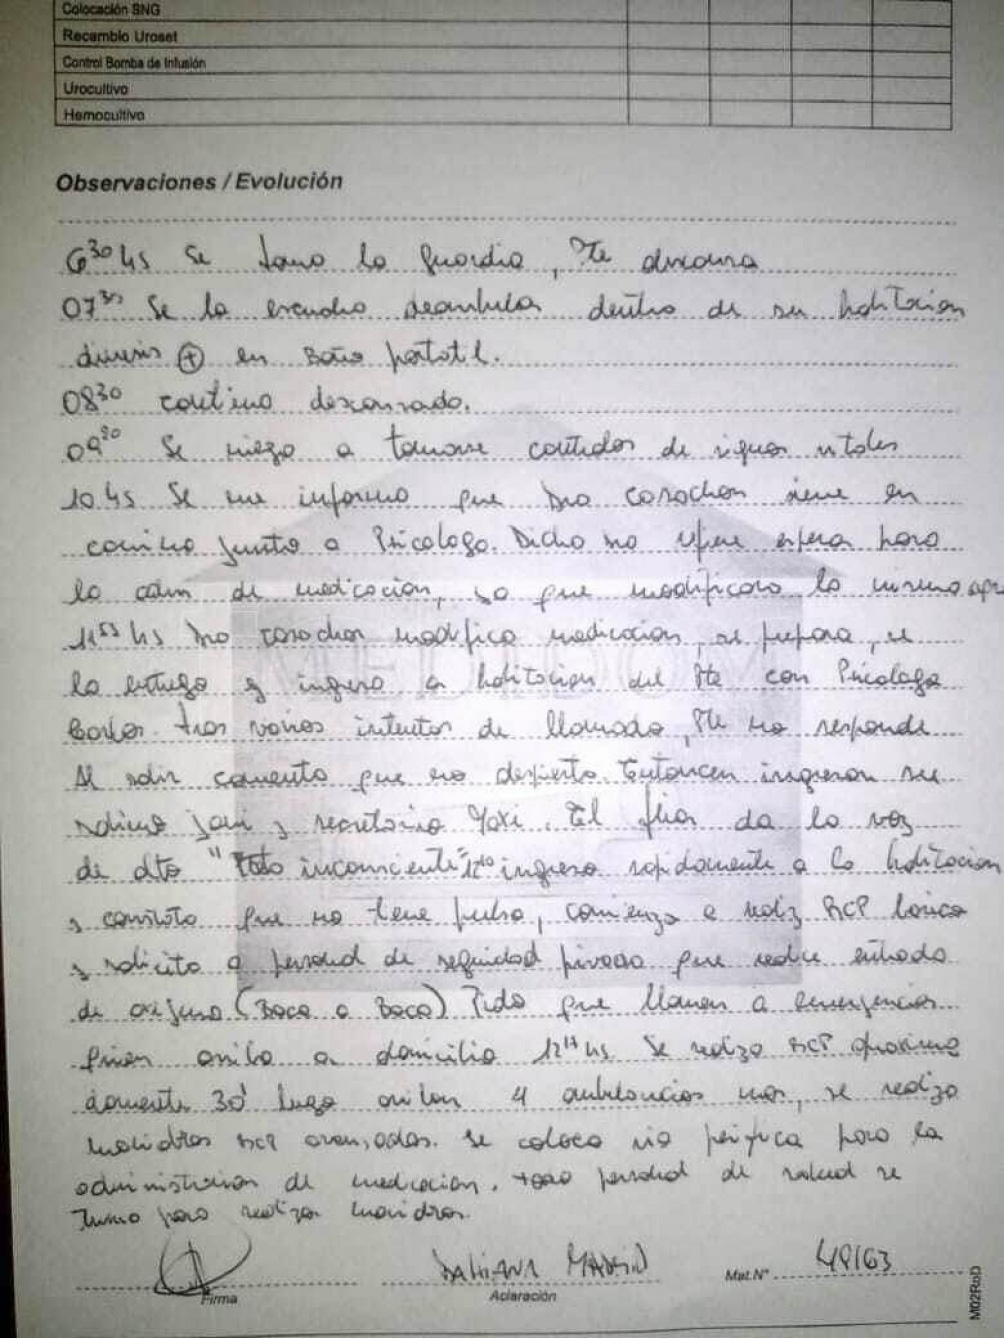 Colocación SNG
Recambio Uroset
Control Bomba de Infusión
Urocultivo
Hemocultivo
Observaciones / Evolución
6³⁰ hs Se toma la guardia, Pte descansa
07³⁰ Se la escucha deambular dentro de su habitacion
diuresis (+) en Baño portatil.
08³⁰ continua descansando.
09²⁰ Se niega a tomarse controles de signos vitales
10 hs Se me informa que Dra Cosachov viene en
camino junto a Psicologo. Dicha me refiere espera para
la de medicacion, ya que modificara la misma
11⁵⁵ hs Dra Cosachov modifica medicacion, se prepara, se
la entrego y ingresa a habitacion del Pte con Psicologo
tras varios intentos de llamado, Pte no responde
Al salir comenta que no desperto. Entoncen ingresan su
sobrino Joni y secretario Maxi. El da la voz
de alto "Pte inconsciente" 12¹⁰ ingreso rapidamente a la habitacion
y constato que no tiene pulso, comienzo a realiz RCP basica
y solicito a personal de seguridad privada que realice entrada
de oxigeno (Boca a Boca) Pido que llamen a emergencias
quien arriba a domicilio 12¹⁷ hs Se realiza RCP aproxima
damente 30' luego arriban 4 ambulancias mas, se realiza
maniobras RCP avanzadas. Se coloca via periferica para la
administracion de medicacion. todo personal de salud se
turna para realizar maniobras.
DAHIANA MADRID 49163
Firma Aclaración Mat.Nº
M02RoD
MEDIDOM